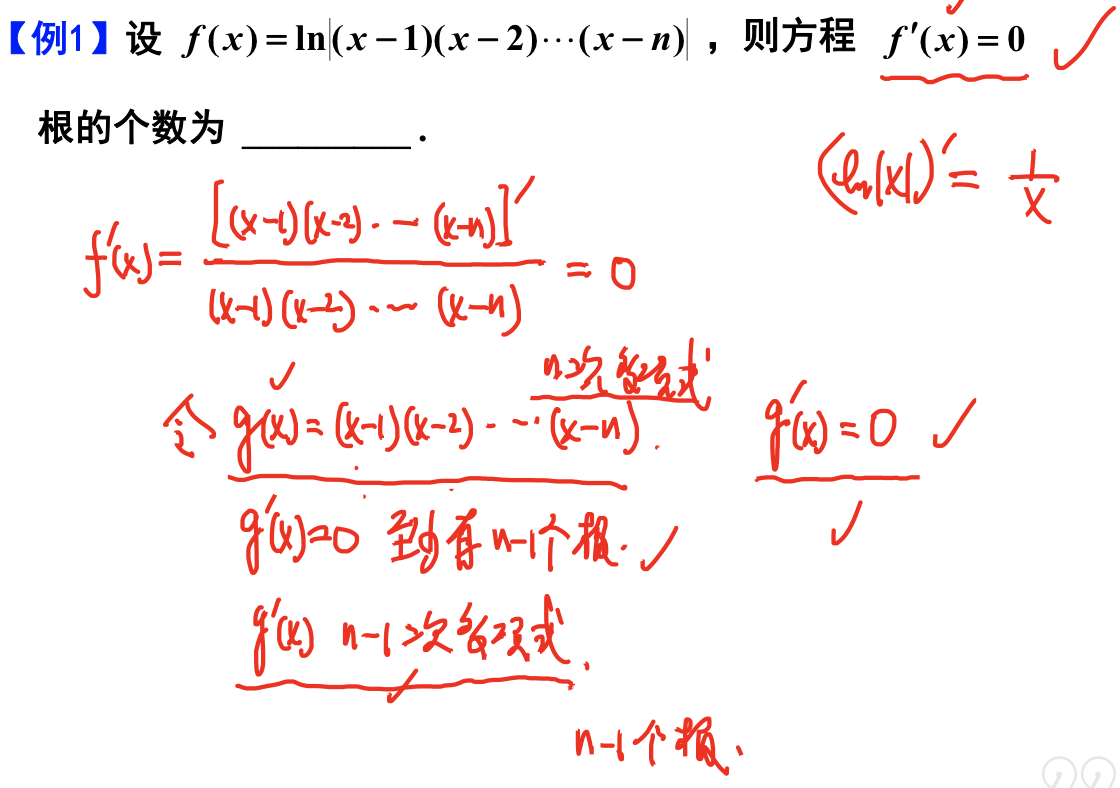 【例1】设 f(x)=ln|(x−1)(x−2)⋯(x−n)| ，则方程 f′(x)=0
根的个数为 ________ .
(ln|x|)′= 1/x
f′(x)= [(x-1)(x-2)⋯(x-n)]′ / (x-1)(x-2)⋯(x-n) = 0
n次多项式
令 g(x)=(x-1)(x-2)⋯(x-n). g′(x)=0
g′(x)=0 至少有n-1个根.
g′(x) n-1次多项式.
n-1个根.